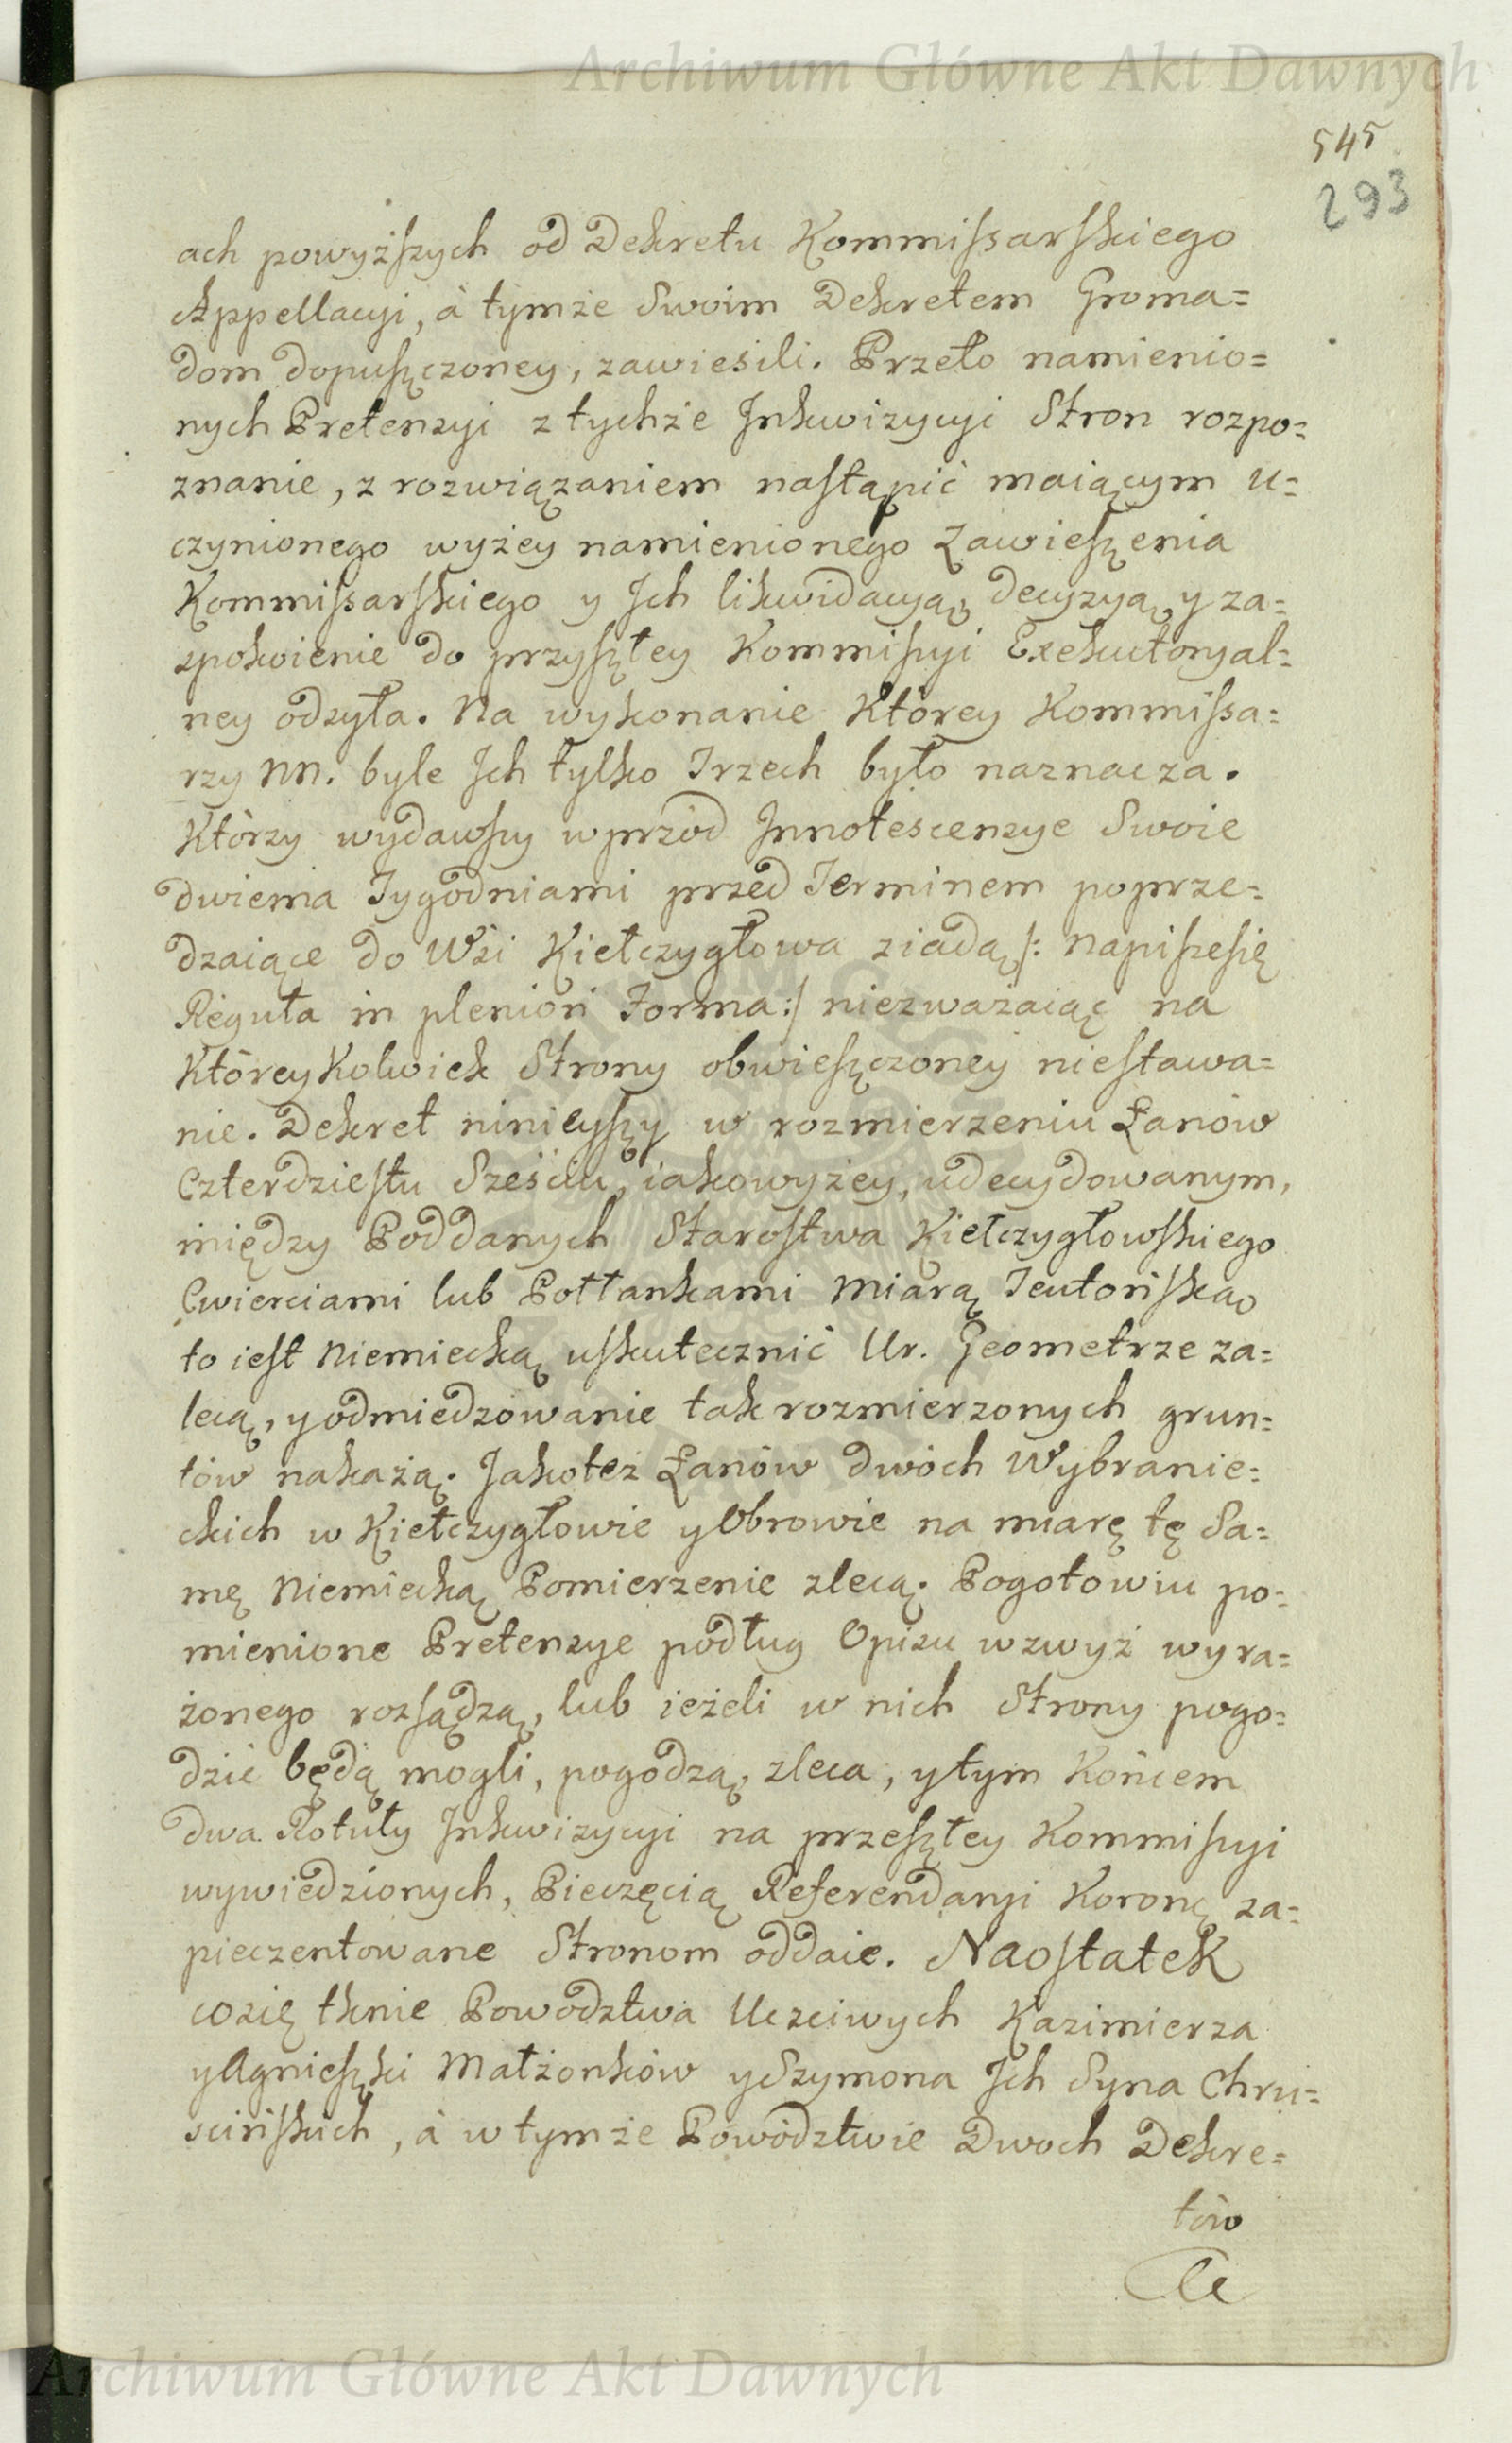 Archiwum Główne Akt Dawnych
545
293
ach powyższych od Dekretu Kommissarskiego
Appellacyi, à tymże Swoim Dekretem Groma=
dom dopuszczoney, zawiesili. Przeto namienio=
nych Pretensyi z tychże Inkwizycyi Stron rozpo=
znanie, z rozwiązaniem nastąpić maiącym u=
czynionego wyżey namienionego Zawieszenia
Kommissarskiego y Ich likwidacyą, decyzyą y za=
spokoienie do przyszłey Kommissyi Exekutoryal=
ney odsyła. Na wykonanie Którey Kommissa=
rzy NN. byle Ich tylko Trzech było naznacza.
Którzy wydawszy wprzód Innotescensye Swoie
dwiema Tygodniami przed Terminem poprze=
dzaiące do Wsi Kiełczygłowa ziadą /: Napiszesię
Reguła in pleniori Forma :/ niezważaiąc na
Którey Kolwiek Strony obwieszczoney niestawa=
nie. Dekret ninieyszy w rozmierzeniu Łanów
Czterdziestu Sześciu, iakowyżey, udecydowanym,
między Poddanych Starostwa Kiełczygłowskiego
Cwierciami lub Półłankami Miarą Teutońską
to iest Niemiecką uskutecznić Ur. Geometrze za=
lecą, y odmiedzowanie tak rozmierzonych grun=
tów nakażą. Jakoteż Łanów dwóch Wybranie=
ckich w Kiełczygłowie y Obrowie na miarę tę Sa=
mę Niemiecką Pomierzenie zlecą. Pogotowiu po=
mienione Pretensye podług Opisu wzwyż wyra=
żonego rozsądzą, lub ieżeli w nich Strony pogo=
dzić będą mogli, pogodzą, zleca, y tym Końcem
dwa Rotuły Inkwizycyi na przeszłey Kommissyi
wywiedzionych, Pieczęcią Referendaryi Koronę za=
pieczentowane Stronom oddaie. Naostatek
cosię tknie Powodztwa Uczciwych Kazimierza
y Agnieszki Małżonków y Szymona Ich Syna Chru=
scińskich, à w tymże Powództwie Dwoch Dekre=
tów
Archiwum Główne Akt Dawnych